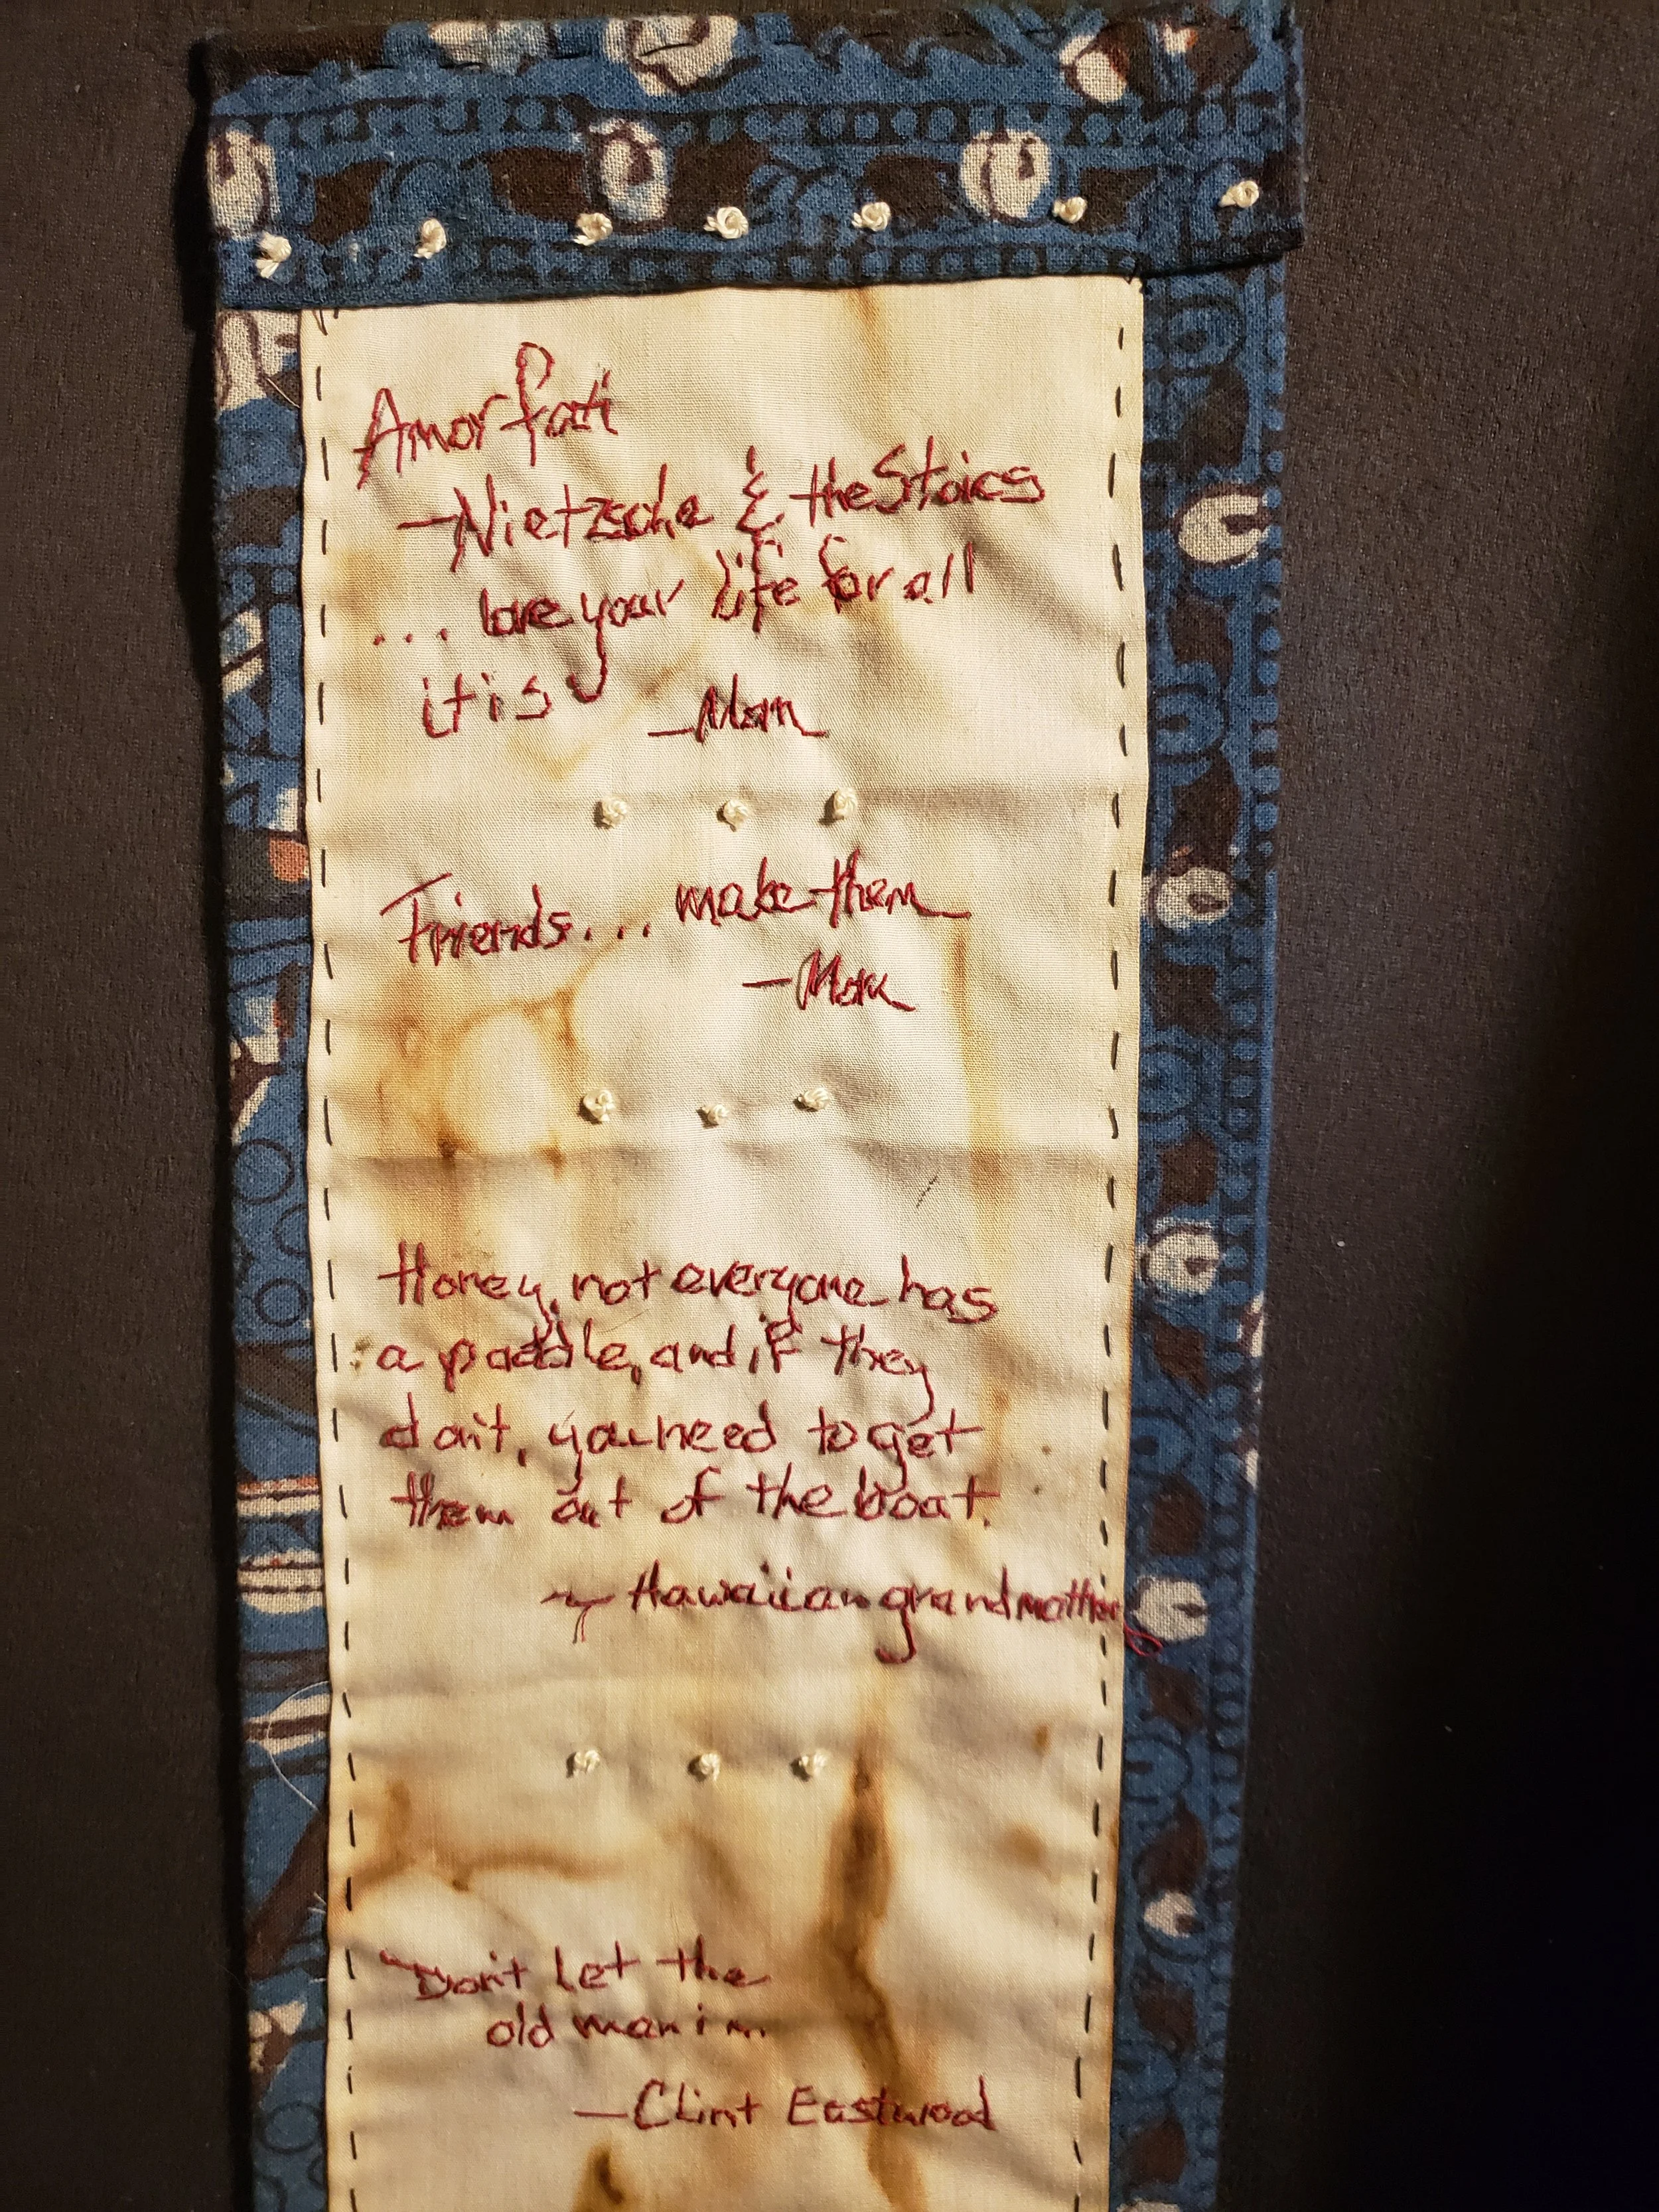 Amor fati
—Nietzsche & the Stoics
... love your life for all
it is
—Mom
Friends... make them
—Mom
Honey, not everyone has
a paddle, and if they
don't, you need to get
them out of the boat.
~ Hawaiian grandmother
Don't let the
old man in.
—Clint Eastwood